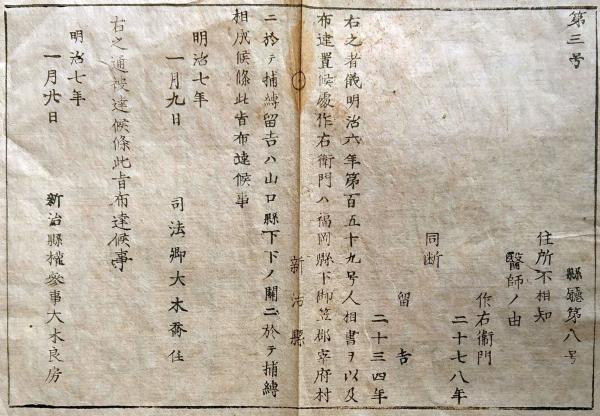 第三号
縣廳第八号
住所不相知
醫師ノ由
作右衛門
二十七八年
同断
留吉
二十三四年
右之者儀明治六年第百五十九号人相書ヲ以及
布達置候處作右衛門ハ福岡縣下御笠郡宰府村
新治縣
ニ於テ捕縛留吉ハ山口縣下下ノ關ニ於テ捕縛
相成候條此旨布達候事
明治七年
一月九日
司法卿大木喬任
右之通被達候條此旨布達候事
明治七年
一月廿日
新治縣權參事大木良房